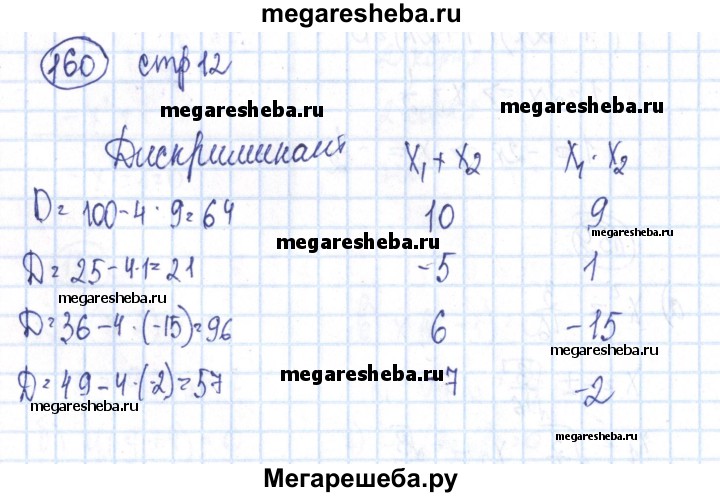 megaresheba.ru
160 стр 12
megaresheba.ru megaresheba.ru
Дискриминант x₁ + x₂ x₁ · x₂
D = 100 - 4 · 9 = 64 10 9
megaresheba.ru megaresheba.ru
D = 25 - 4·1 = 21 -5 1
megaresheba.ru
D = 36 - 4 · (-15) = 96 6 -15
megaresheba.ru megaresheba.ru
D = 49 - 4·(-2) = 57 megaresheba.ru -7 -2
megaresheba.ru
megaresheba.ru
Мегарешеба.ру